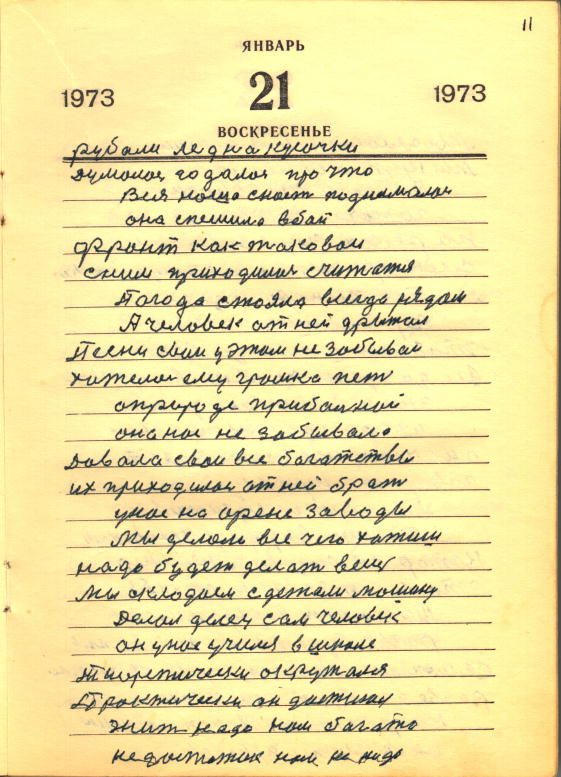 11
ЯНВАРЬ
1973 21 1973
ВОСКРЕСЕНЬЕ
рубали лед на кусочки
Думалос гадалос про что
Вся наша снаст поднималас
она спешила в бой
Фронт как таковой
с ним приходилос считатя
Погода стояла всегда рядом
А человек от ней дрыжал
Песни свои у этом не забывал
хотелос ему громка пет
априроде прибалной
она нас не забывала
Давала свои все богатствы
их приходилос от ней брат
унас на арене заводы
Мы делали все чего хотили
надо будет делат вещ
мы складаем с детали машину
Делал делец сам человек
он унас учился в школе
теоретически окружался
Практически он
жит надо нам богато
недостаток нам не надо